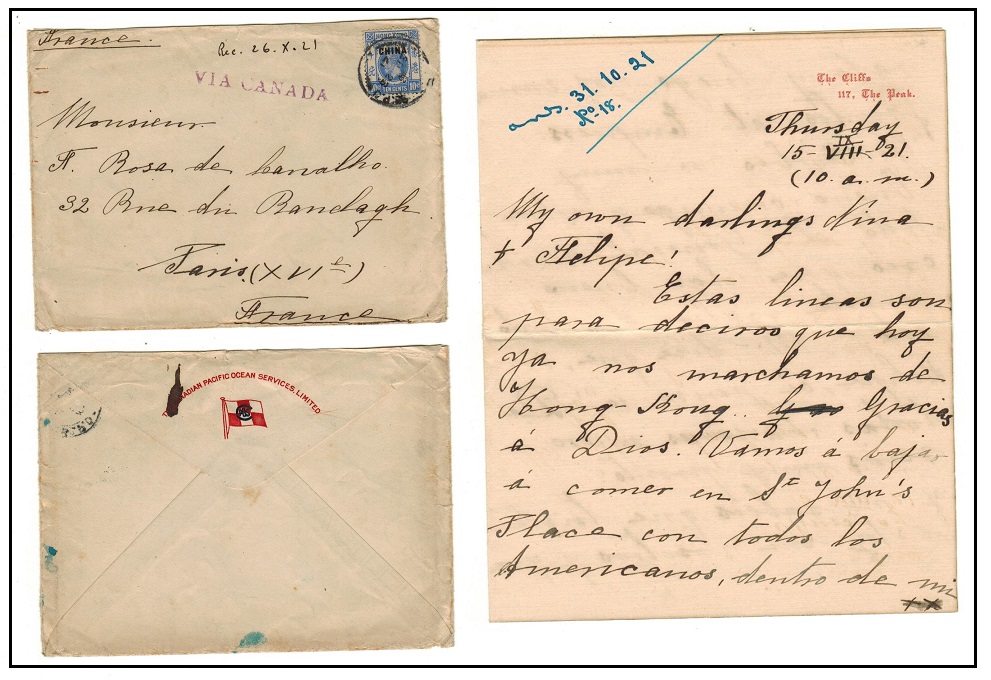 France.
Rec. 26.X.21
VIA CANADA
CHINA
TEN CENTS
Monsieur
F. Rosa de Carvalho.
32 Rue du Ranelagh.
Paris. (XVIe)
France
CANADIAN PACIFIC OCEAN SERVICES, LIMITED
ans. 31.10.21
No. 18.
The Cliffs
117, The Peak.
Thursday
IX
15-VIII-21.
(10. a. m.)
My own darlings Nina
+ Felipe!
Estas lineas son
para deciros que hoy
ya nos marchamos de
Hong-Kong. Gracias
á Dios. Vamos á bajar
á comer en St John's
Place con todos los
Americanos, dentro de mi